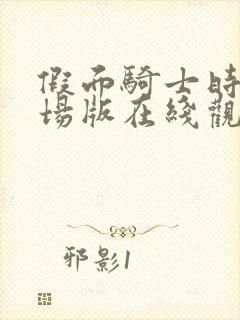 假面騎士時
場版在綫觀
邪影1